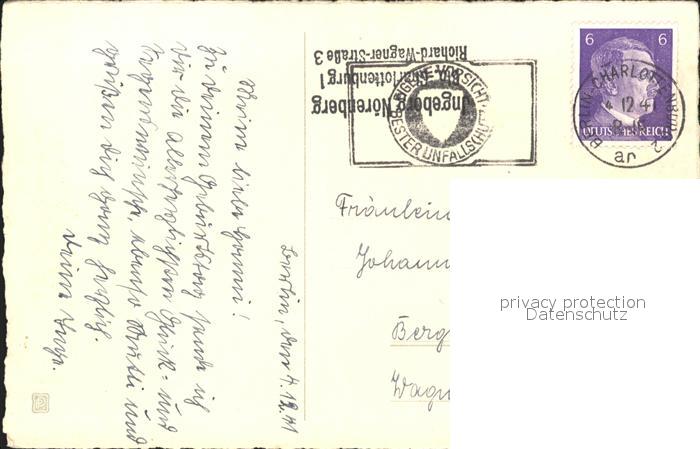 Berlin, den 4.12.41
Mein liebes Hanni!
Zu Deinem Geburtstag sende ich
Dir die allerherzlichsten Glück- und
Segenswünsche, ebenso Mutti und
grüßen Dich ganz herzlich.
Deine Inge.
Ingeborg Nörenberg
Bln.-Charlottenburg 1
Richard-Wagner-Straße 3
EIGENE VORSICHT
BESTER UNFALLSCHUTZ
6 6
DEUTSCHES REICH
BERLIN-CHARLOTTENBURG 2
4.12.41
ar
Fräulein
Johann
Berg
Wagn
privacy protection
Datenschutz